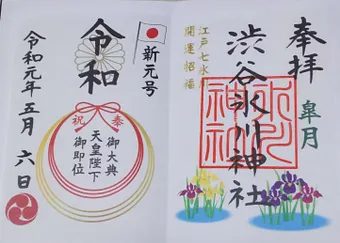 奉拝
皐月
渋谷氷川神社
氷川神社
江戸七氷川
開運招福
新元号
令和
奉祝
御大典
天皇陛下
御即位
令和元年五月六日